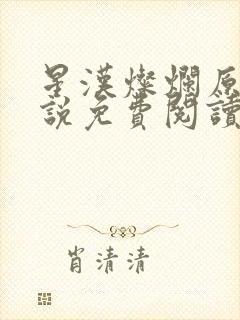 星漢燦爛原
說免費閱讀
肖清清